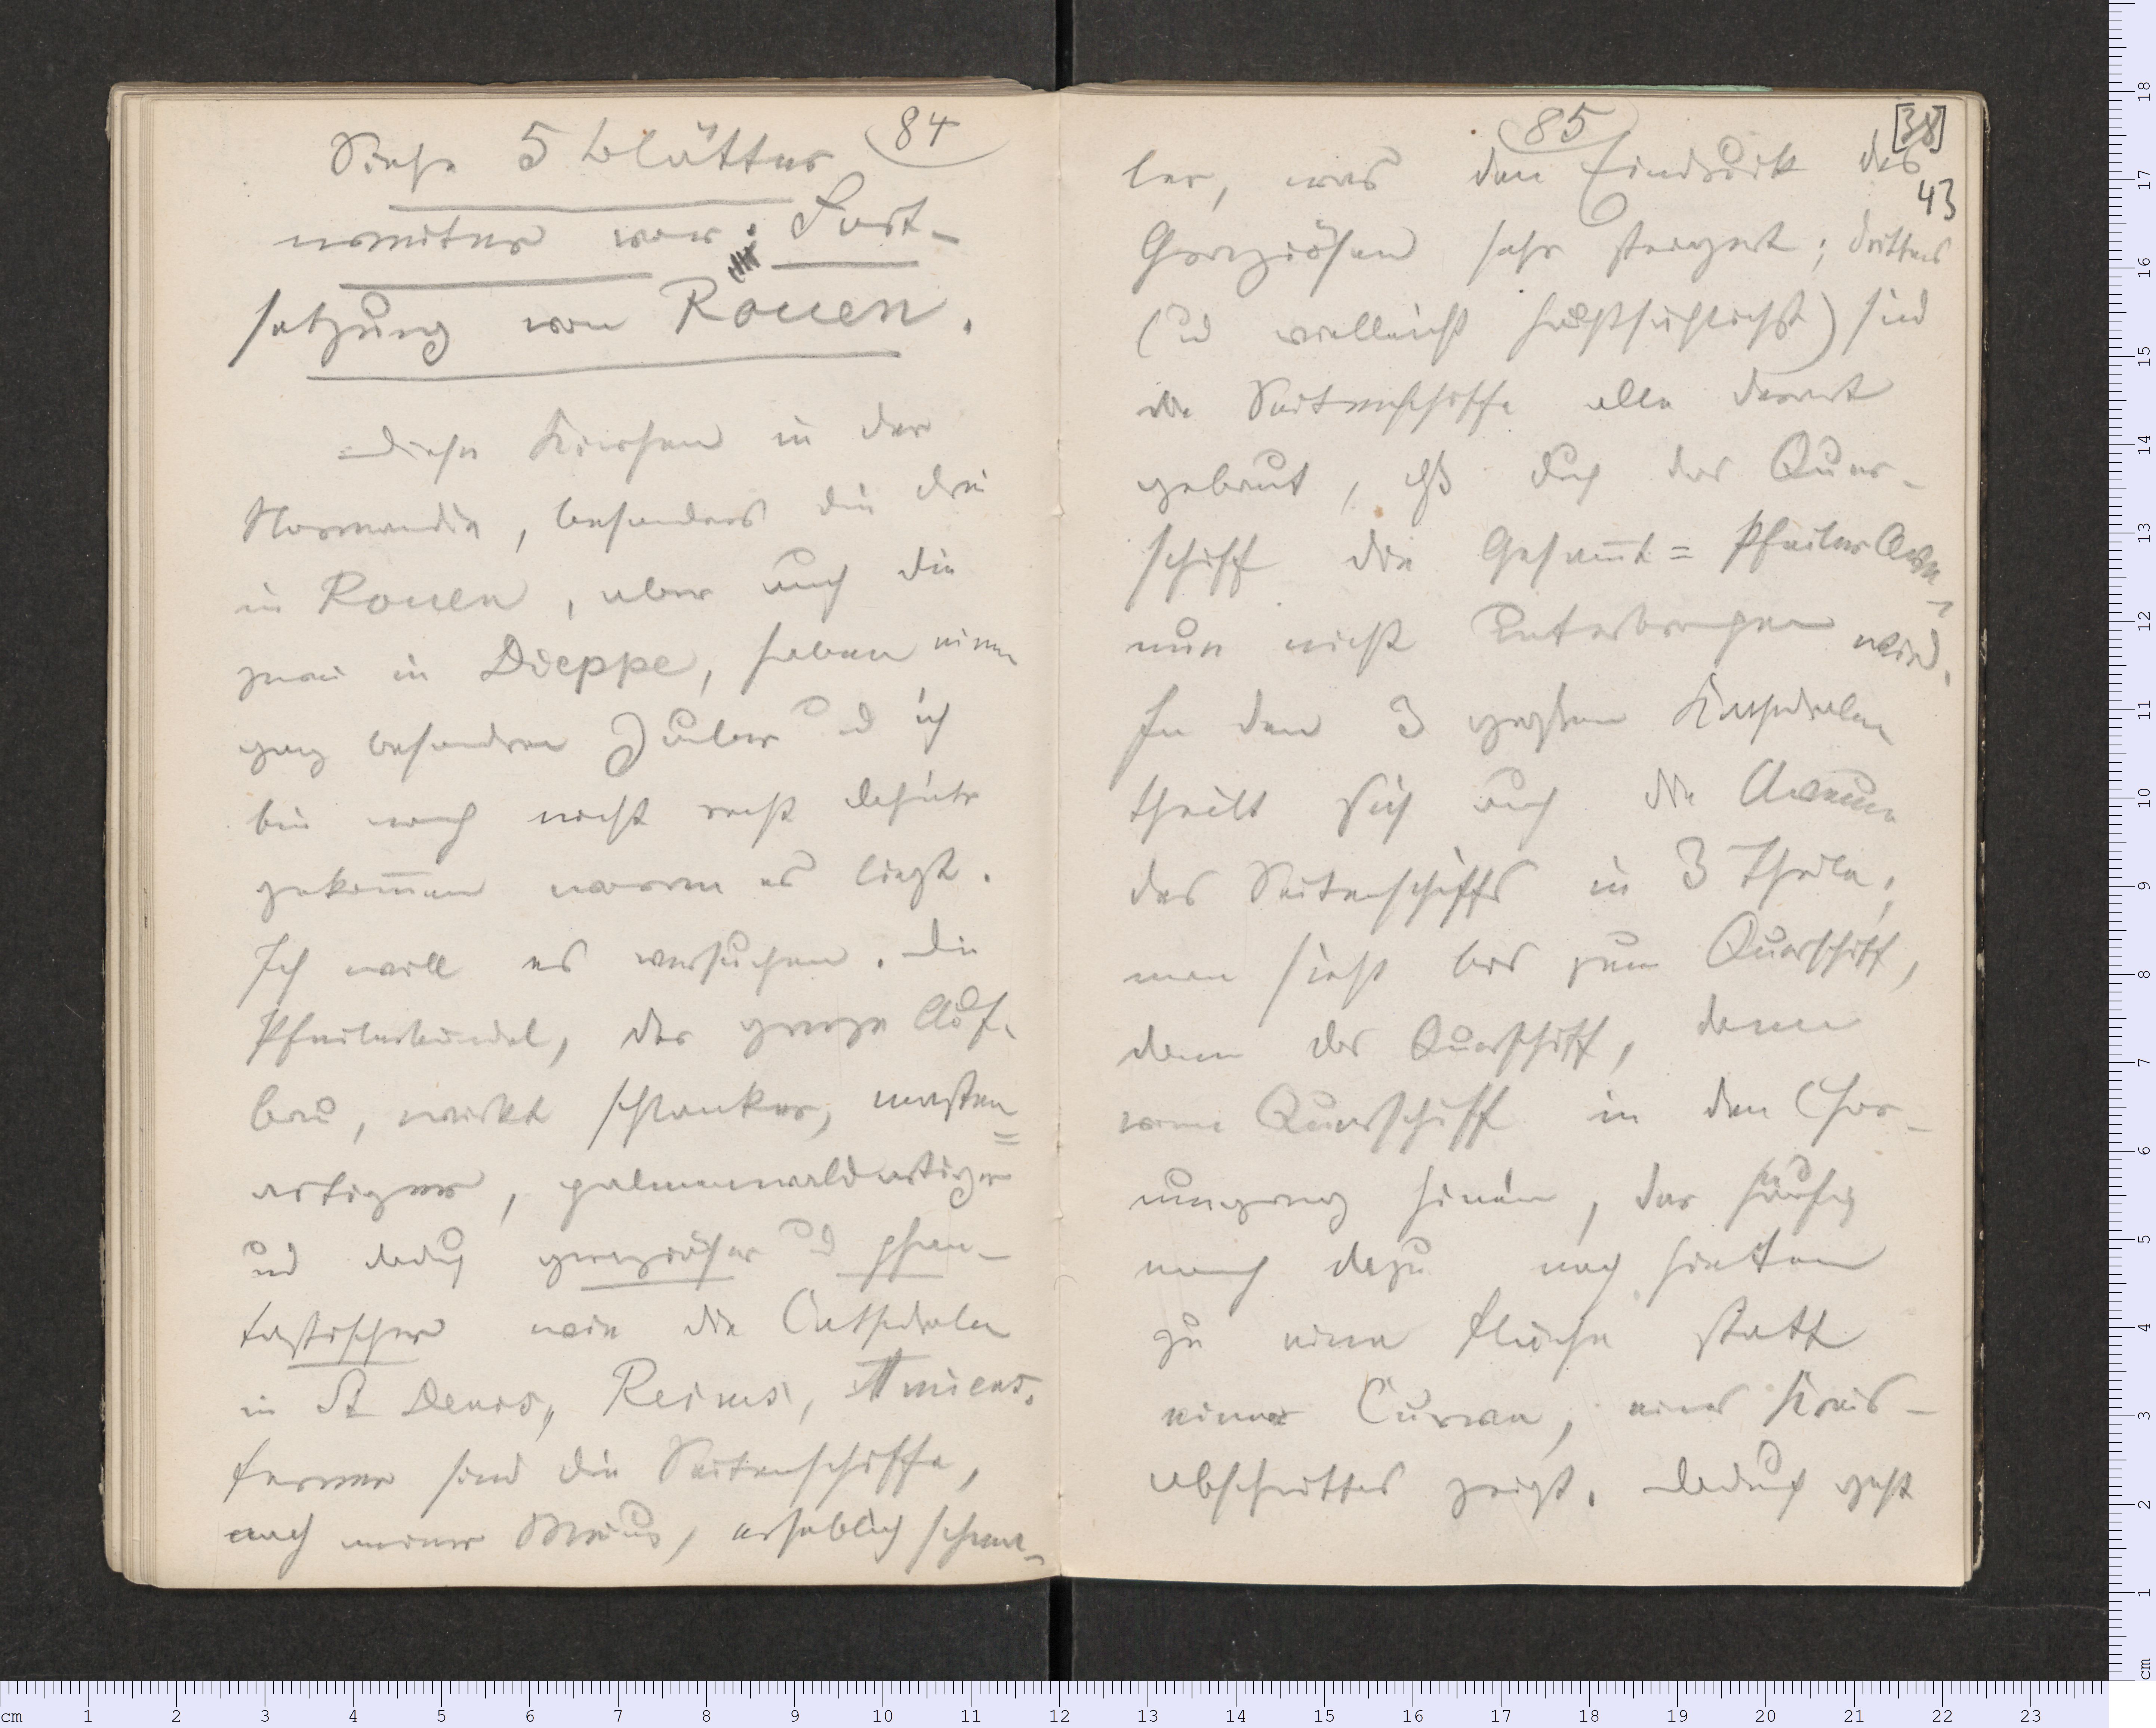 84
Siehe 5 Blätter
weiter vor: Fort-
setzung von Rouen.
Diese Kirchen in der
Normandie, besonders die drei
in Rouen, aber auch die
zwei in Dieppe, haben einen
ganz besondren Zauber und ich
bin noch nicht recht dahinter
gekom̅en woran es liegt.
Ich will es versuchen. Die
Pfeilerbündel, der ganze Auf-
bau, wirkt schlanker, masten=
artiger, palmenwaldartiger
und dadurch graziöser und phan-
tastischer wie die Cathedralen
in St Denis, Reims, Amiens.
Ferner sind die Seitenschiffe,
nach meiner Meinung, erheblich schma-
85
[38]
43
ler, was den Eindruck des
Graziösen sehr steigert; drittens
(und vielleicht hauptsächlichst) sind
die Seitenschiffe alle derart
gebaut, daß durch das Quer-
schiff die Gesam̅t=Pfeiler Avenue
nun nicht unterbrochen wird.
In den 3 großen Kathedralen
theilt sich auch die Avenue
des Seitenschiffs in 3 Theile;
man sieht bis zum Querschiff,
dann das Querschiff, dann
vom Querschiff in den Chor-
umgang hinein, der häufig
noch dazu nach hinten
zu eine Fläche statt
einer Curve, eines Kreis-
abschnittes zeigt. Dadurch geht